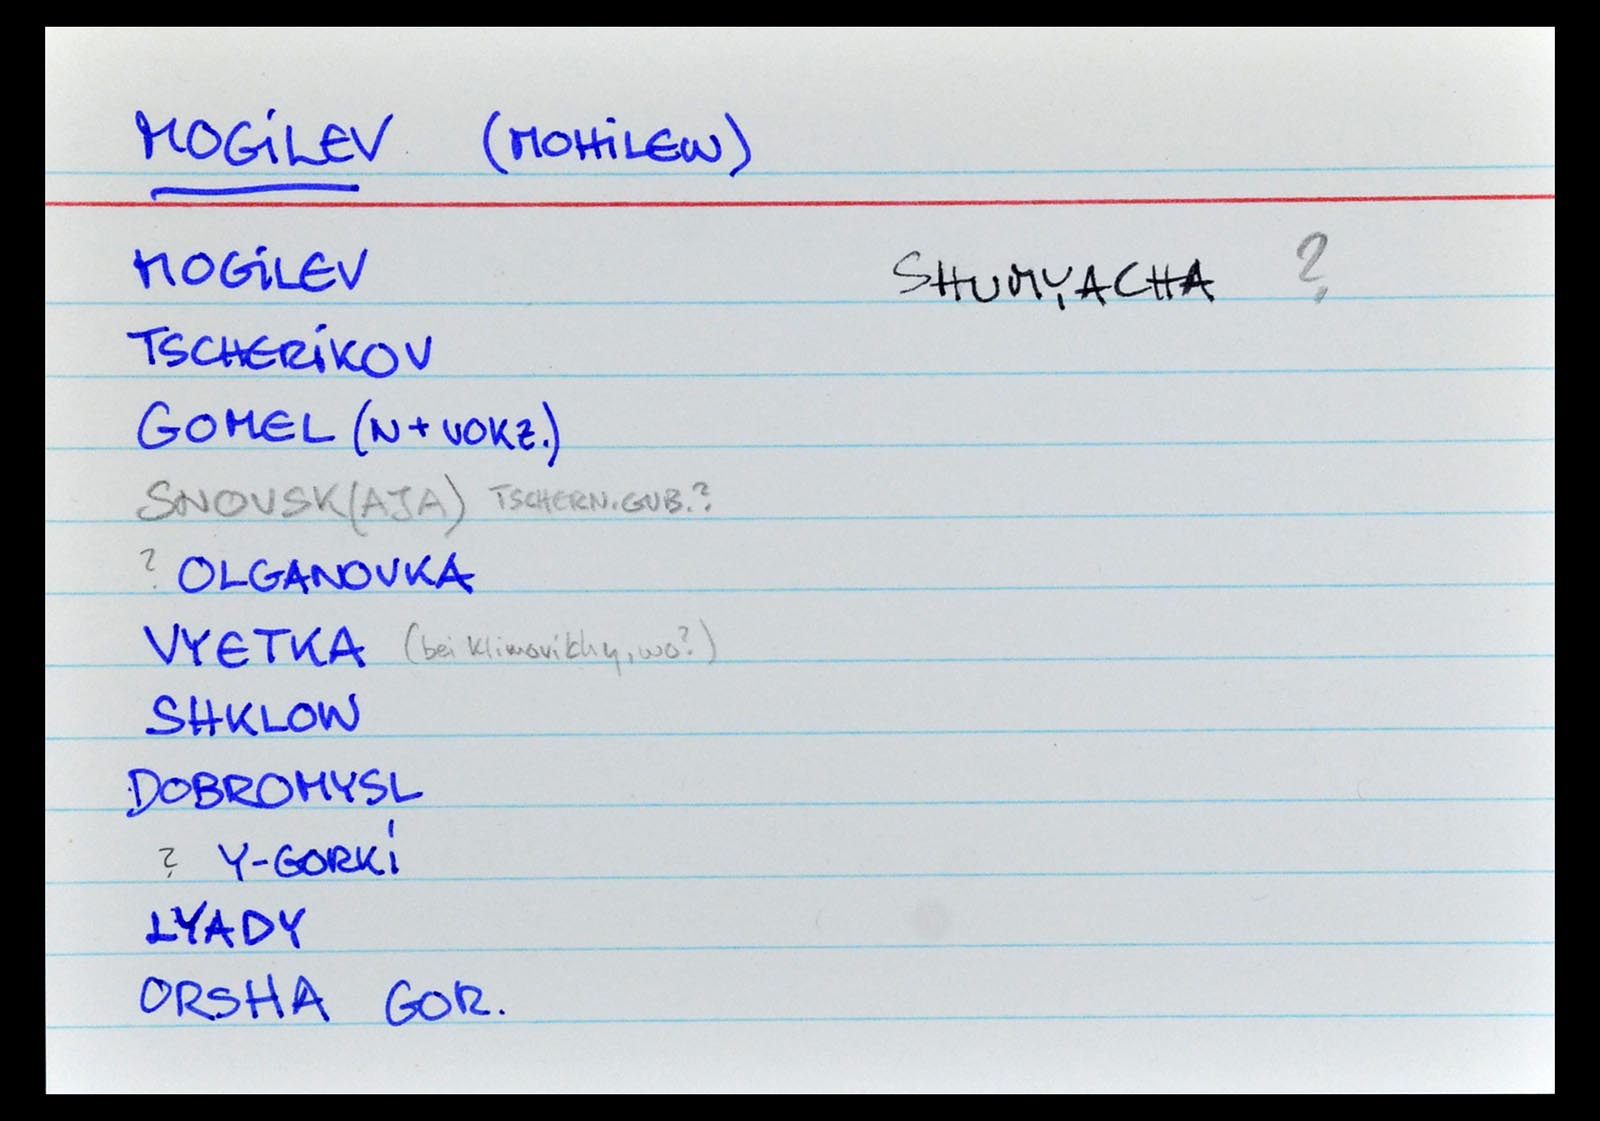 MOGILEV (MOHILEW)
MOGILEV
TSCHERIKOV
GOMEL (N + VOKZ.)
SNOVSK(AJA) TSCHERN.GUB.?
? OLGANOVKA
VYETKA (bei Klimovichy, wo?)
SHKLOW
DOBROMYSL
? Y-GORKI
LYADY
ORSHA GOR.
SHUMYACHA ?